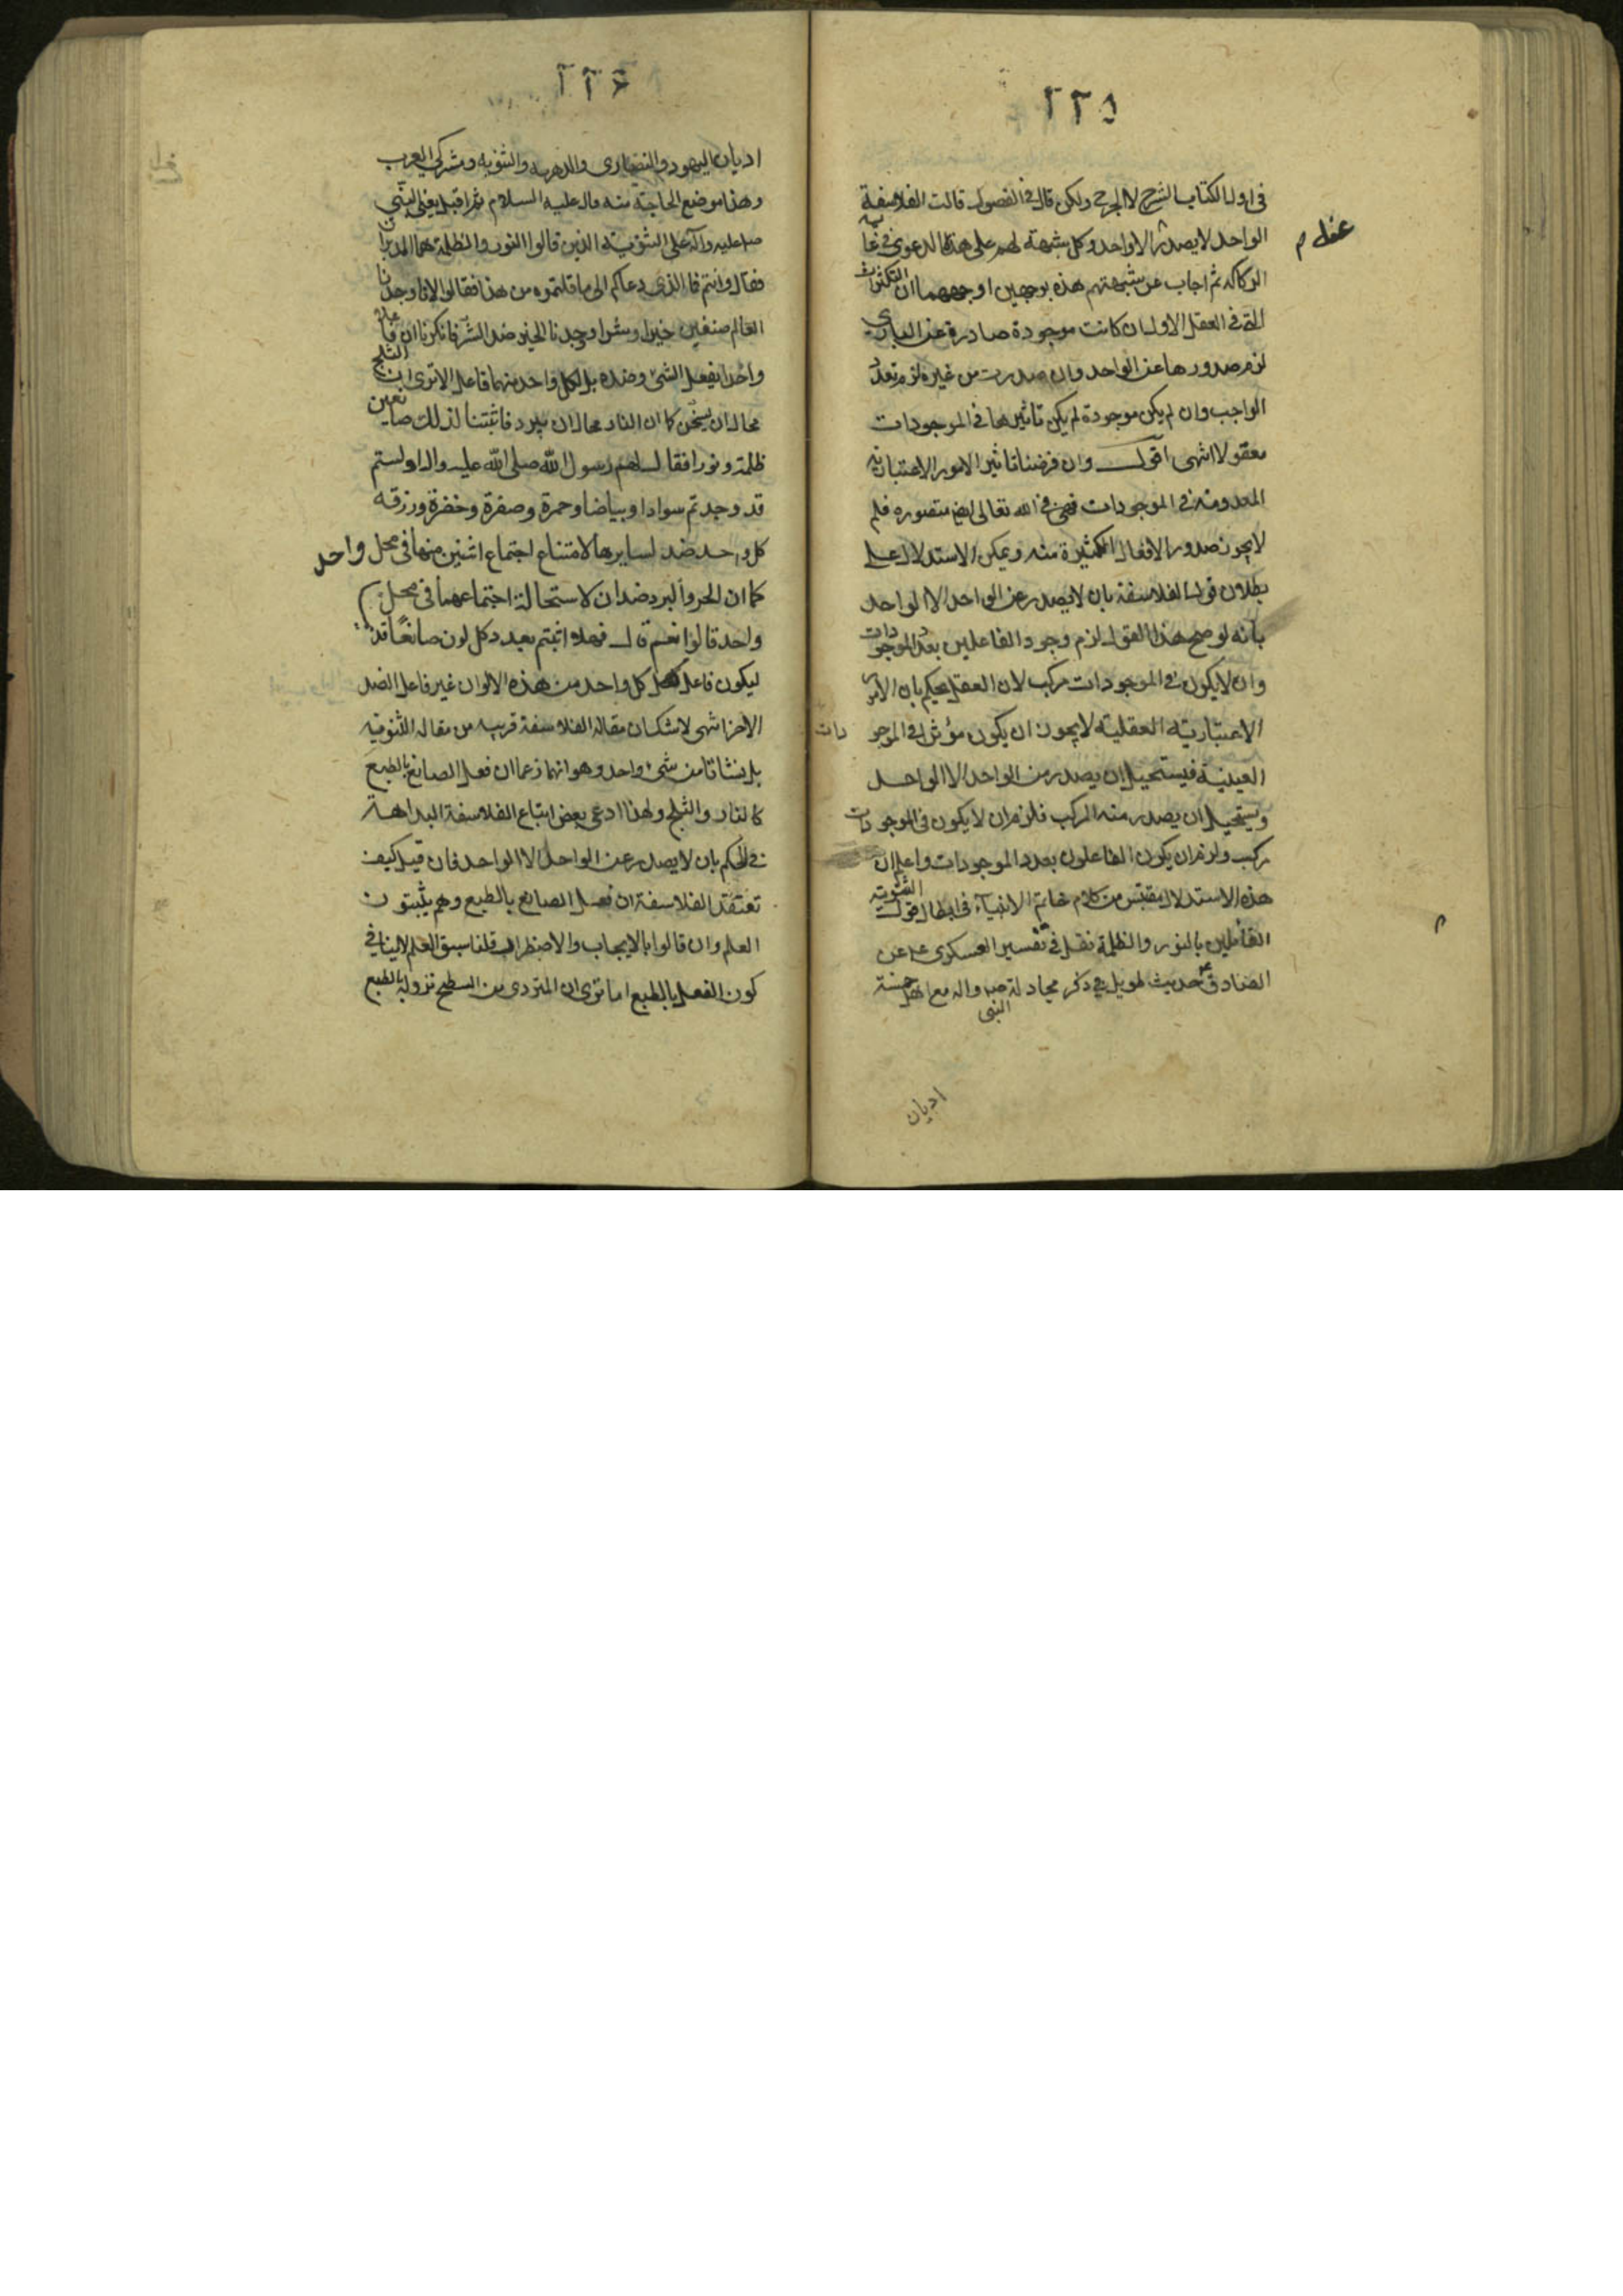 ٢٢٥
في اول الكتاب الشرح لا الجرح ولكن قال في الفصول قالت الفلاسفة
الواحد لا يصدر عنه الا واحد وكل شبهة لهم على هذا الدعوى في غاية
عقله م
الركاكه ثم اجاب عن شبهتهم هذه بوجهين اوجههما ان التكثرات
التي في العقل الاول ان كانت موجودة صادرة عن الباري
لزم صدورها عن الواحد وان صدرت من غيره لزم تعدد
الواجب وان لم يكن موجودة لم يكن تاثيرها في الموجودات
معقولا انتهى اقول وان فرضنا تاثير الامور الاعتباريه
المعدومة في الموجودات فهي في الله تعالى ايض متصوره فلم
لا يجوز صدور الافعال الكثيرة منه ويمكن الاستدلال على
بطلان قول الفلاسفة بان لا يصدر عن الواحد الا الواحد
بانه لو صح هذا القول لزم وجود الفاعلين بعدد الموجودات
وان لا يكون في الموجودات مركب لان العقل يحكم بان الامر
الاعتبارية العقلية لا يجوز ان يكون مؤثرا في الموجودات
العينية فيستحيل ان يصدر من الواحد الا الواحد
ويستحيل ان يصدر منه المركب فلزم ان لا يكون في الموجودات
مركب ولزم ان يكون الفاعلون بعدد الموجودات واعلم ان
هذه الاستدلال مقتبس من كلام خاتم الانبياء في ابطال قول الثنوية
القائلين بالنور والظلمة نقل في تفسير العسكري ع عن
الصادق ع حديث طويل في ذكر مجادلة النبي ص واله مع اهل خمسة
اديان
٢٢٦
اديان اليهود والنصارى والدهريه والثنويه ومشركي العرب
وهذا موضع الحاجة منه قال عليه السلام ثم اقبل يعني النبي
صل عليه وآله على الثنوية الذين قالوا النور والظلمة هما المدبران
فقال وانتم فما الذي دعاكم الى ما قلتموه من هذا فقالوا لانا وجدنا
العالم صنفين خيرا وشرا ووجدنا الخير ضد الشر فانكرنا ان فاعلا
واحدا يفعل الشئ وضده بل لكل واحد منهما فاعل الا ترى ان الثلج
محال ان يسخن كما ان النار محال ان يبرد فاثبتنا لذلك صانعين
ظلمة ونورا فقال لهم رسول الله صلى الله عليه واله اولستم
قد وجدتم سوادا وبياضا وحمرة وصفرة وخضرة وزرقه
كل واحد ضد لسايرها لامتناع اجتماع اثنين منها في محل واحد
كما ان الحر والبرد ضدان لاستحالة اجتماعهما في محل
واحد قالوا نعم قال فهلا اثبتم بعدد كل لون صانعا قد
ليكون فاعل كل واحد من هذه الالوان غير فاعل الضد
الاخر انتهى لا شك ان مقالة الفلاسفة قريبه من مقاله الثنويه
بل نشاتا من شئ واحد وهو انهما زعما ان فعل الصانع بالطبع
كالنار والثلج ولهذا ادعى بعض اتباع الفلاسفة البداهة
في الحكم بان لا يصدر عن الواحد الا الواحد فان قيل كيف
تعتقد الفلاسفة ان فعل الصانع بالطبع وهم يثبتون
العلم وان قالوا بالايجاب والاضطرار قلنا سبق العلم لا ينافي
كون الفعل بالطبع اما ترى ان المتردى من السطح نزوله بالطبع